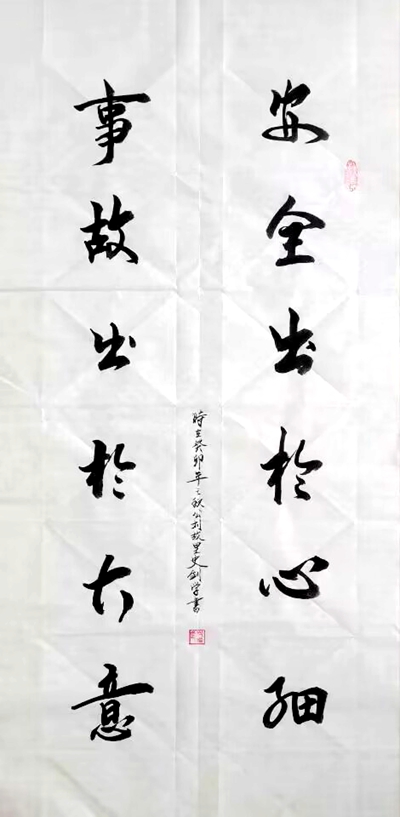 安全出於心细
事故出於大意
時在癸卯年之秋公刘故里史剑学書